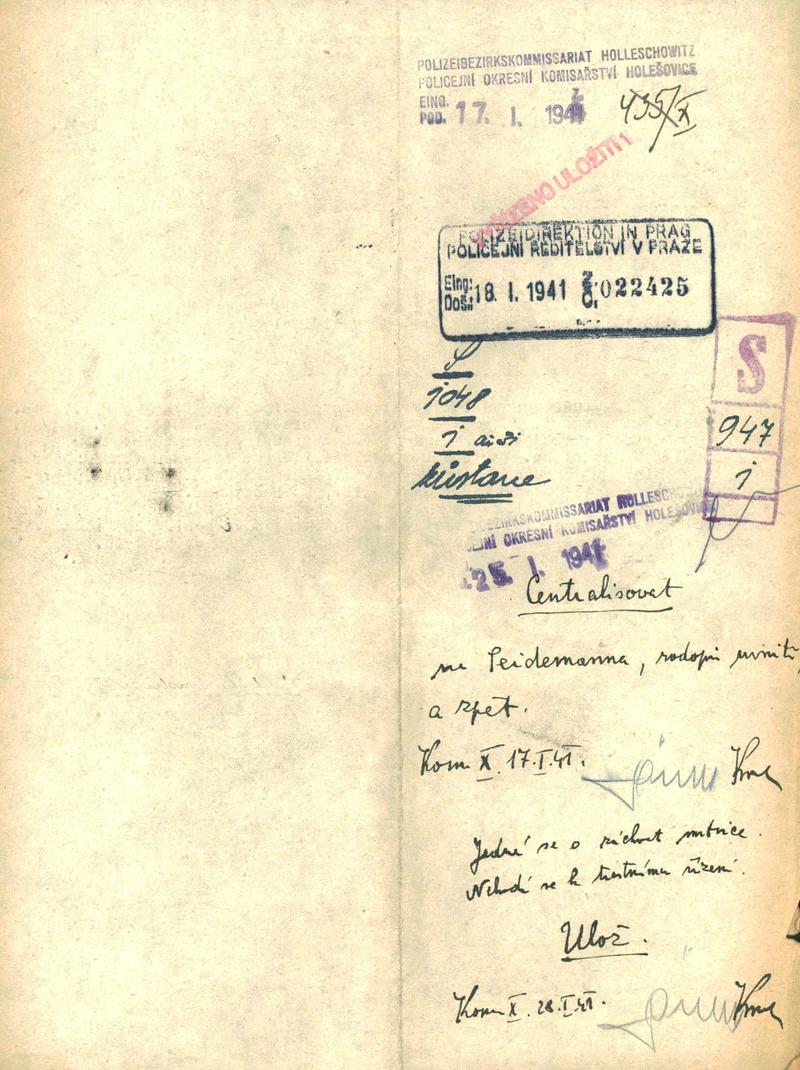 POLIZEIBEZIRKSKOMMISSARIAT HOLLESCHOWITZ
POLICEJNÍ OKRESNÍ KOMISAŘSTVÍ HOLEŠOVICE
EING.
POD. 17. I. 1941 435/X
ULOŽITI
POLIZEIDIREKTION IN PRAG
POLICEJNÍ ŘEDITELSTVÍ V PRAZE
Eing:
Doš.: 18. I. 1941 022425
S
1048
1
S
947
1
BEZIRKSKOMMISSARIAT HOLLESCHO
JNÍ OKRESNÍ KOMISAŘSTVÍ HOLEŠOVIC
25. I. 1941
Centralisovat
na Seidemanna,
a zpět.
Kom. X. 17.I.41.
Jedná se o záchvat
Nehodí se k trestnímu řízení.
Ulož.
Kom. X. 28.I.41.